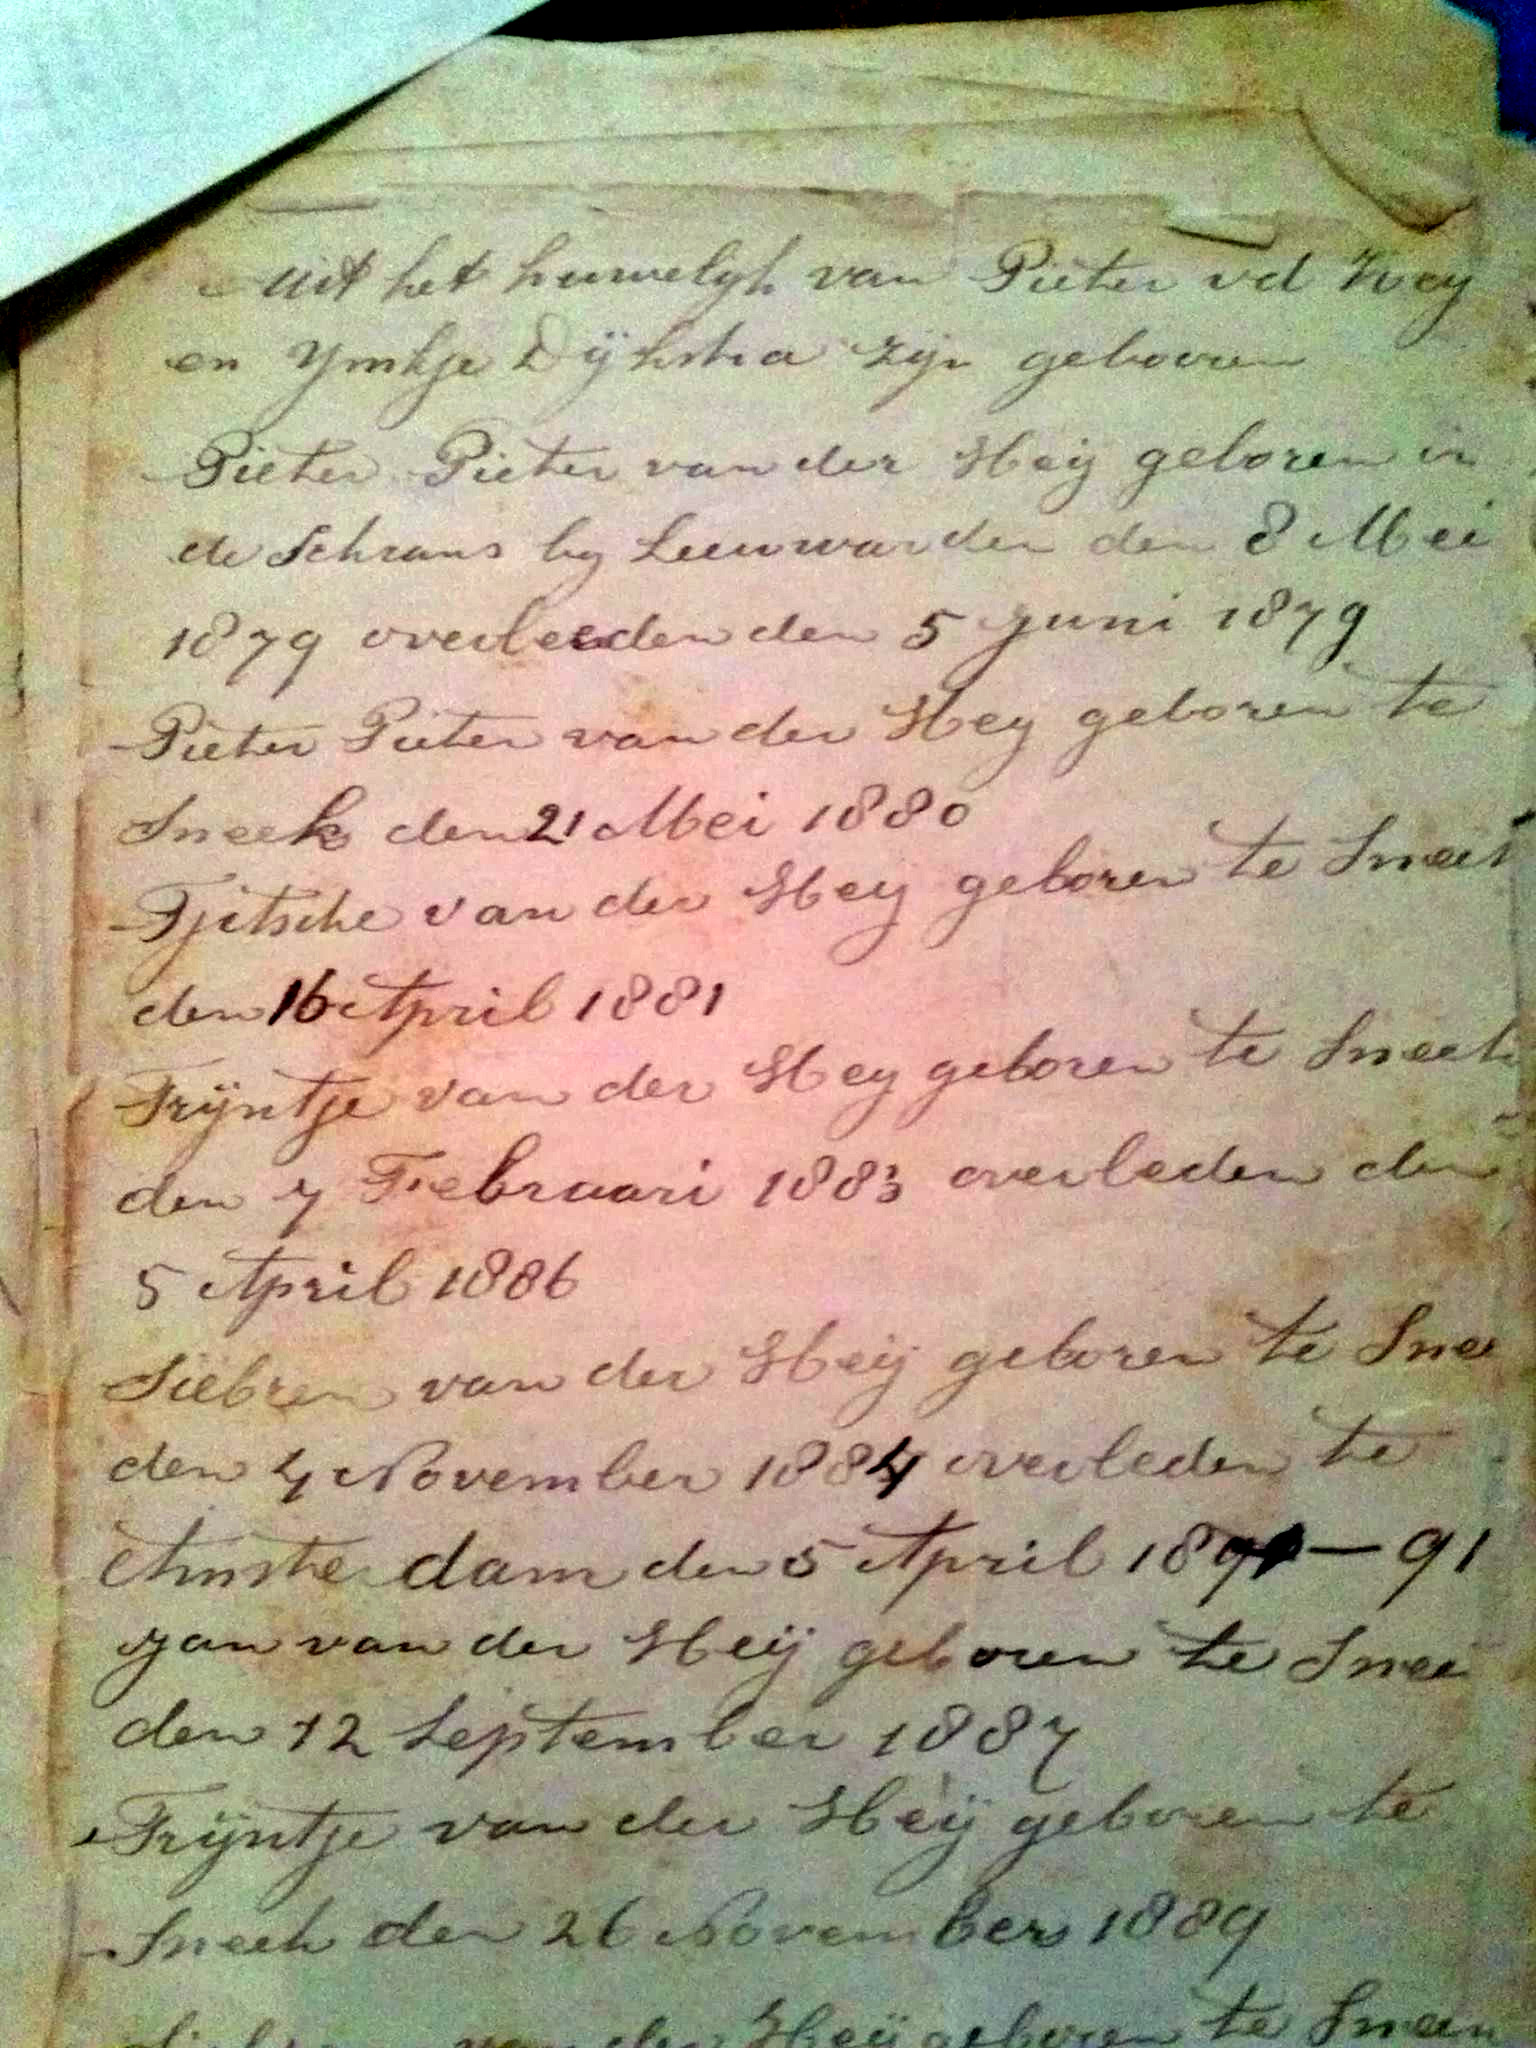 Uit het huwelijk van Pieter vd Hey
en Ymkje Dÿkstra zijn gebooren
Pieter Pieter van der Heÿ geboren in
de Schrans by Leeuwarden den 8 Mei
1879 overleeden den 5 Juni 1879
Pieter Pieter van der Hey geboren te
Sneek den 21 Mei 1880
Tjitsche van der Hey geboren te Sneek
den 16 April 1881
Trÿntje van der Hey geboren te Sneek
den 7 Februari 1883 overleden den
5 April 1886
Siebren van der Heÿ geboren te Snee
den 4 November 1884 overleden te
Amsterdam den 5 April 1891 — 91
Jan van der Heÿ geboren te Snee
den 12 September 1887
Trÿntje van der Heÿ geboren te
Sneek den 26 November 1889
van der Heÿ geboren te Sneek